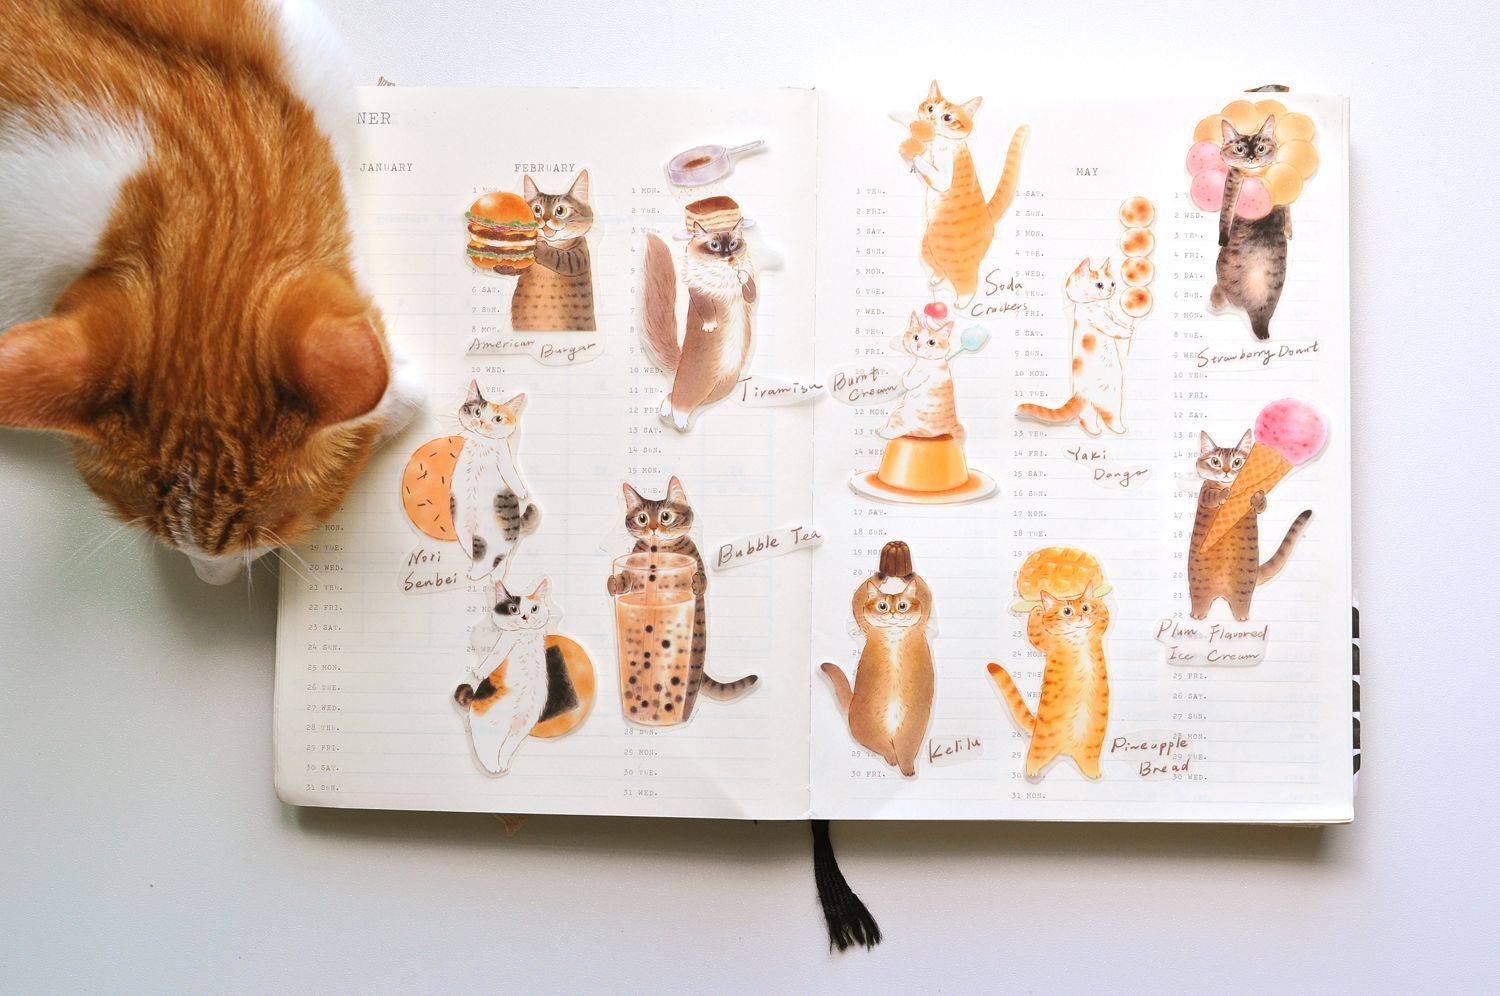 NER
JANUARY
FEBRUARY
MAY
American Burgar
Tiramisu
Nori
Senbei
Bubble Tea
Soda
Crackers
Burnt
Cream
Yaki
Dango
Strawberry Donut
Plum Flavored
Ice Cream
Kelilu
Pineapple
Bread
6 SAT.
7 SUN.
8 MON.
10 WED.
19 TUE.
20 WED.
21 THU.
22 FRI.
23 SAT.
24 SUN.
25 MON.
26 TUE.
27 WED.
28 THU.
29 FRI.
30 SAT.
31 SUN.
1 MON.
2 TUE.
10 WED.
11 THU.
12 FRI.
13 SAT.
14 SUN.
15 MON.
28 SUN.
29 MON.
30 TUE.
31 WED.
1 THU.
2 FRI.
3 SAT.
4 SUN.
5 MON.
6 TUE.
7 WED.
8 THU.
9 FRI.
12 MON.
17 SAT.
18 SUN.
19 MON.
29
30 FRI.
1 SAT.
2 SUN.
3 MON.
4 TUE.
5 WED.
6 THU.
7 FRI.
8 SAT.
9 SUN.
10 MON.
11 TUE.
13 THU.
14 FRI.
15 SAT.
16 SUN.
17 MON.
18 TUE.
19 WED.
31 MON.
2 WED.
5 SAT.
6 SUN.
7 MON.
8 TUE.
9 WED.
10 THU.
11 FRI.
12 SAT.
13 SUN.
25 FRI.
26 SAT.
27 SUN.
28 MON.
30 WED.